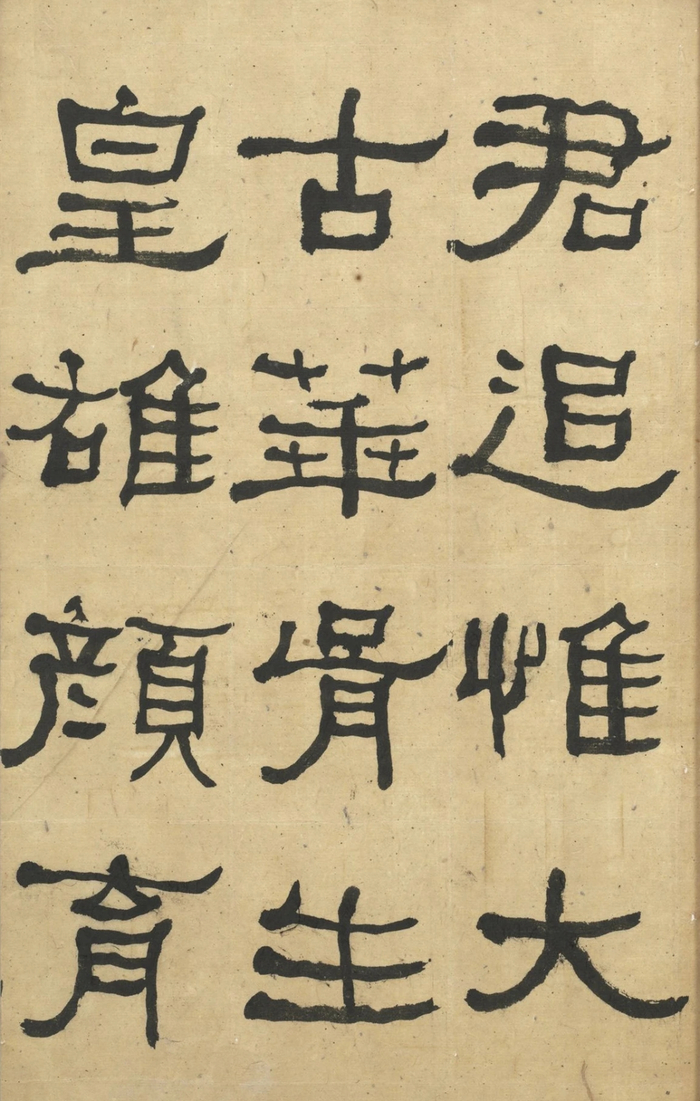 君追惟大
古華胥生
皇雄顏育